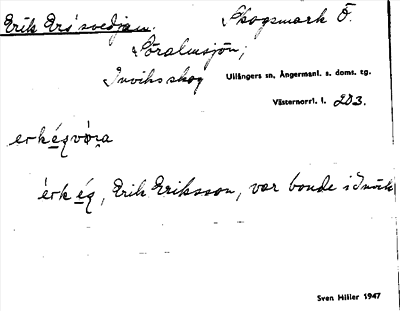 Erik Ers svedjan. Skogsmark Ö.
Söralmsjön,
Inviks skog Ullångers sn, Ångermanl. s. doms. tg.
Västernorrl. l. 203.
erk éqvóṇa
érk éq, Erik Eriksson, var bonde i Invik
Sven Hiller 1947